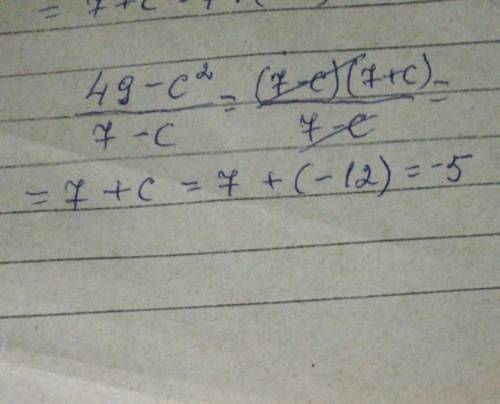 = 7 + c
49 - c² / 7 - c = (7 - c)(7 + c) / 7 - c =
= 7 + c = 7 + (-12) = -5